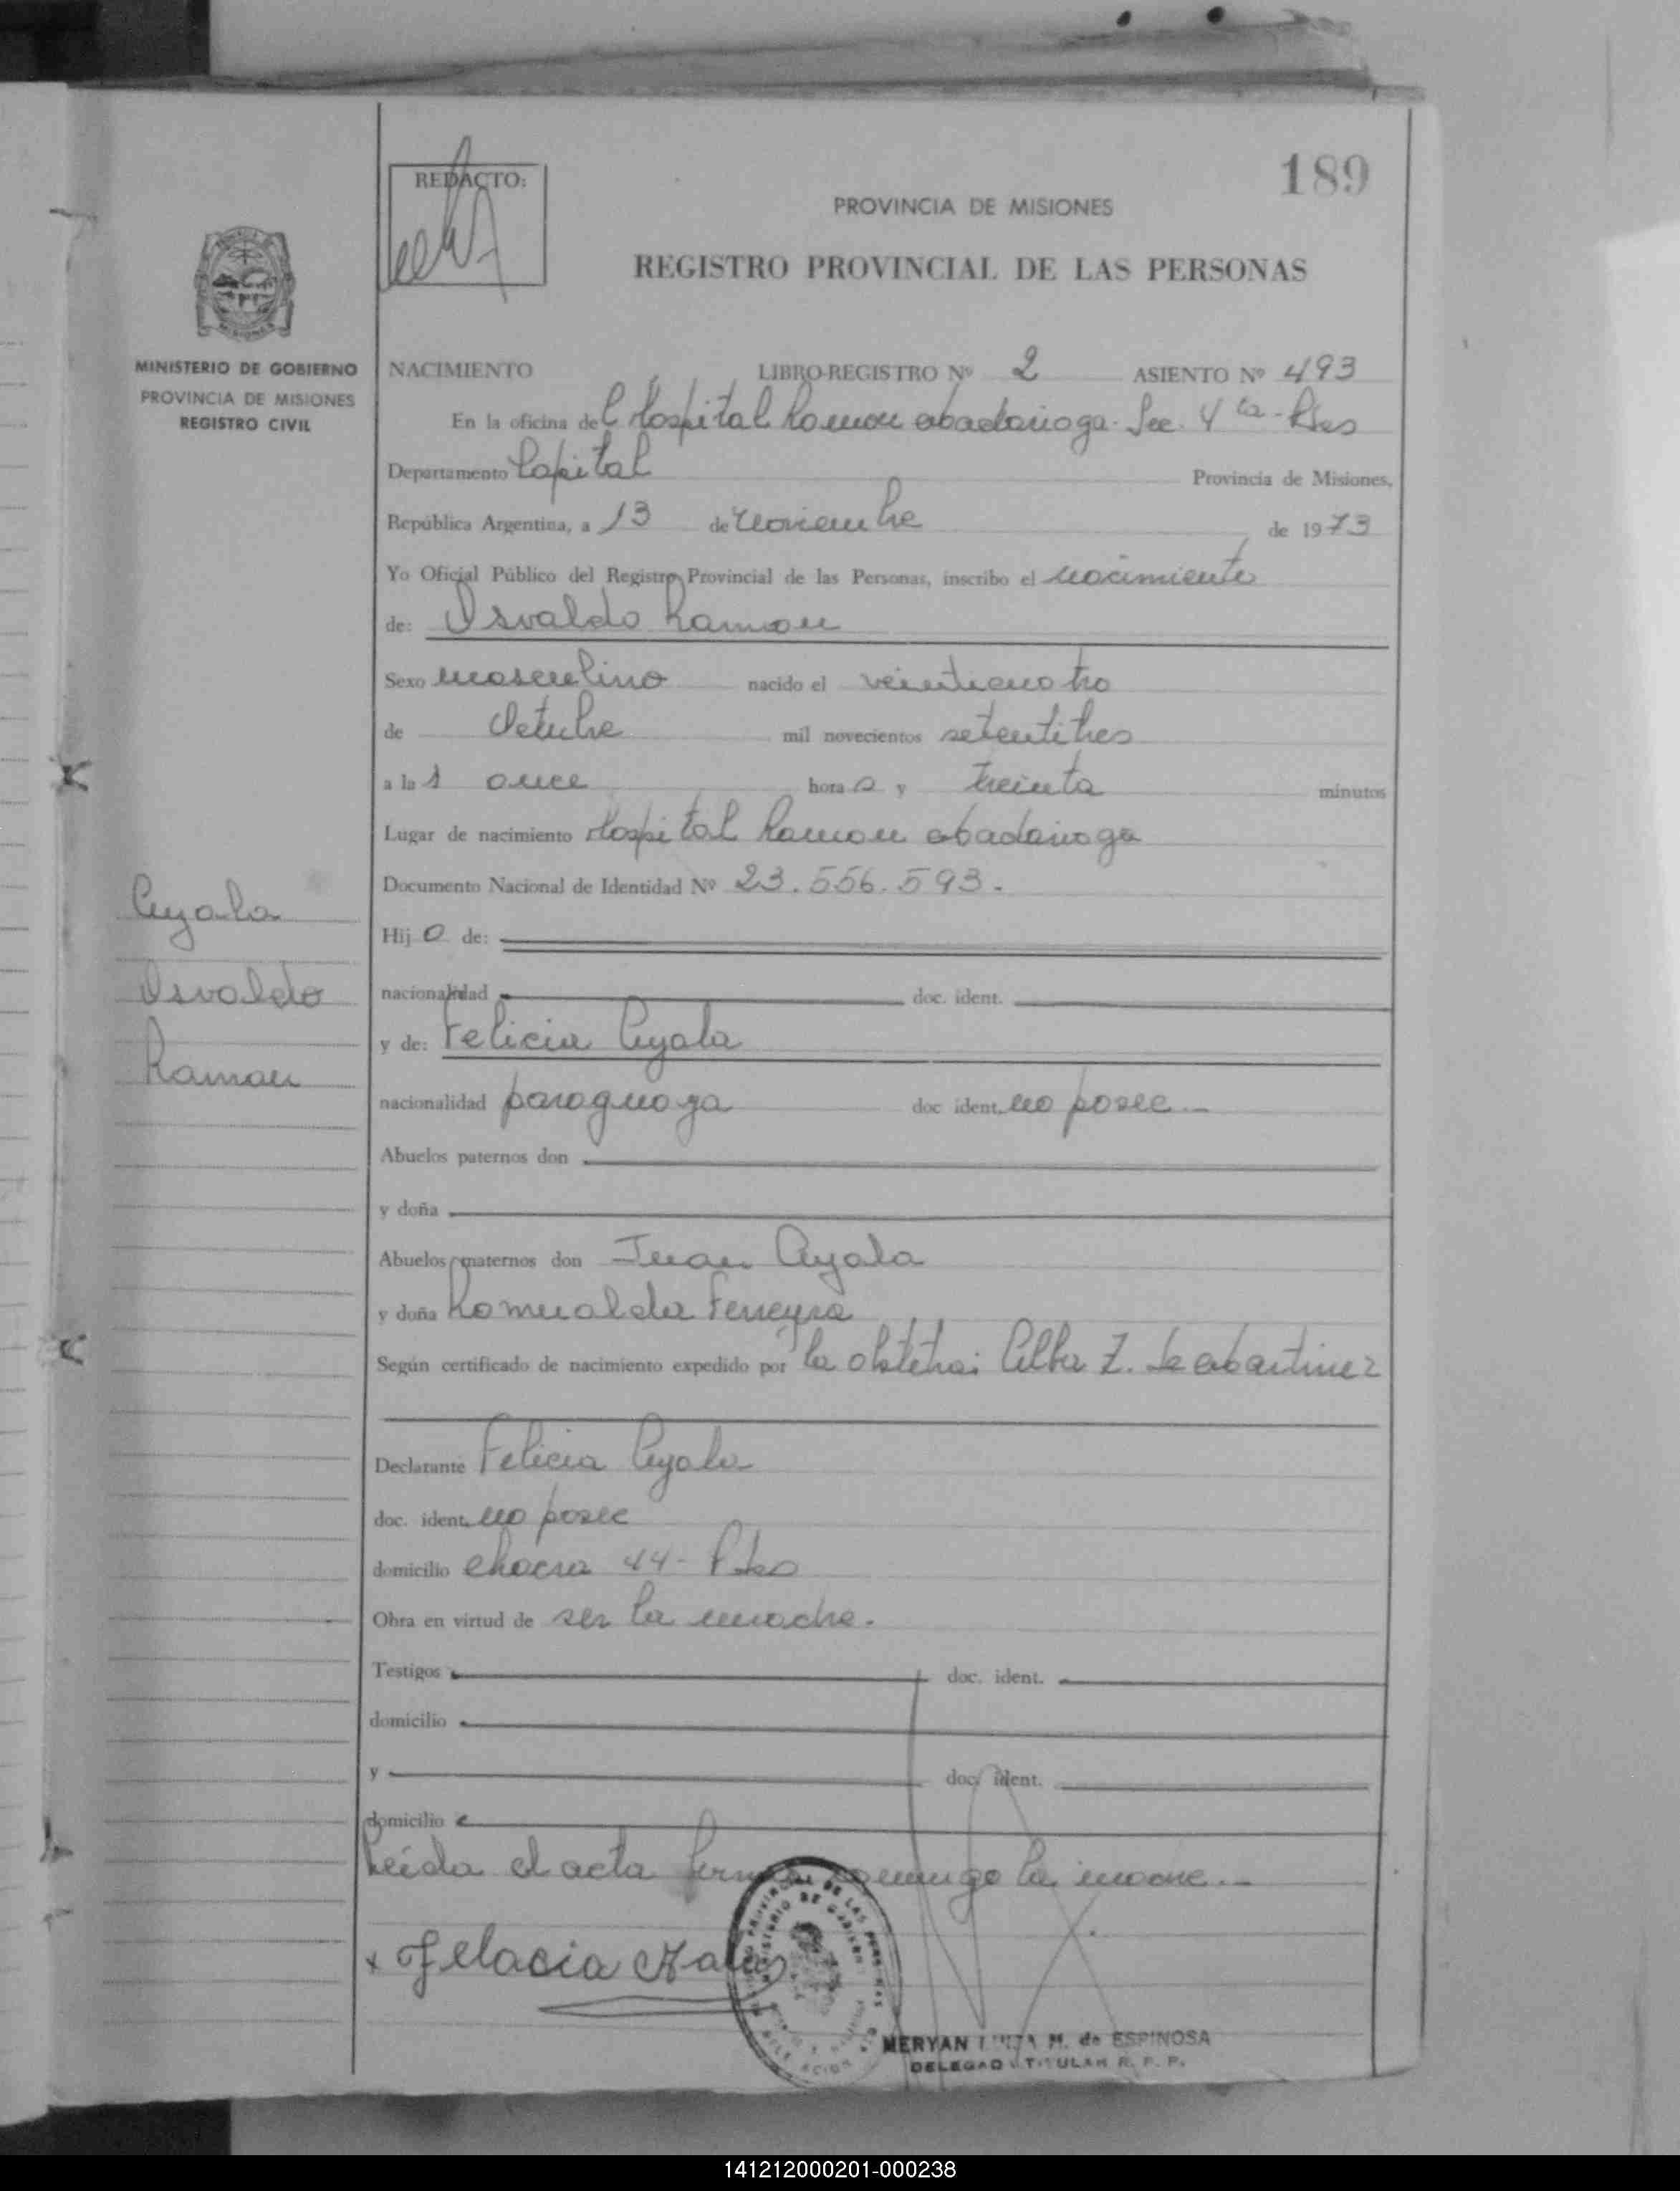 189
REDACTO:
PROVINCIA DE MISIONES
REGISTRO PROVINCIAL DE LAS PERSONAS
MINISTERIO DE GOBIERNO
PROVINCIA DE MISIONES
REGISTRO CIVIL
NACIMIENTO LIBRO-REGISTRO Nº 2 ASIENTO Nº 493
En la oficina del Hospital Ramon abadariaga. Sec. 4ta - Pdas
Departamento Capital Provincia de Misiones,
República Argentina, a 13 de noviembre de 1973
Yo Oficial Público del Registro Provincial de las Personas, inscribo el nacimiento
de: Osvaldo Ramon
Sexo masculino nacido el veinticuatro
de Octubre mil novecientos setentitres
a las once horas y treinta minutos
Lugar de nacimiento Hospital Ramon abadariaga
Documento Nacional de Identidad Nº 23.556.593.
Ayala
Osvaldo
Ramon
Hijo de:
nacionalidad doc. ident.
y de: Felicia Ayala
nacionalidad paraguaya doc ident. no posee
Abuelos paternos don
y doña
Abuelos maternos don Juan Ayala
y doña Romualda Ferreyra
Según certificado de nacimiento expedido por la obstetra: Alba Z. de
Declarante Felicia Ayala
doc. ident. no posee
domicilio chacra 44 - Pdas
Obra en virtud de ser la madre.
Testigos doc. ident.
domicilio
y doc. ident.
domicilio
Leída el acta firma conmigo la madre.
x Felacia
MERYAN M. de ESPINOSA
DELEGADA TITULAR R. P. P.
141212000201-000238